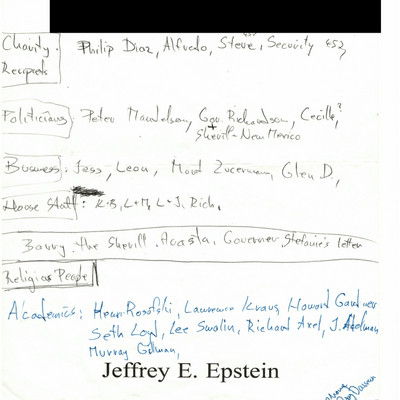 Charity. Philip Diaz, Alfredo, Steve, Security
Recepets
Politicians: Peter Mandelson, Gov. Richardson, Cecille?
+ Sheriff-New Mexico
Business: Jess, Leon, Mort Zucerman, Glen D.,
House Staff: K+B, L+M, L+J, Rich.
Barry, the Sheriff, Acasta, Governer, Stefanie's letter
Religious People
Academics: Henri Rosofski, Lawrence Kraus, Howard Gardner
Seth Loyd, Lee Smolin, Richard Axel, J. Adelman
Murray Gellman,
Jeffrey E. Epstein